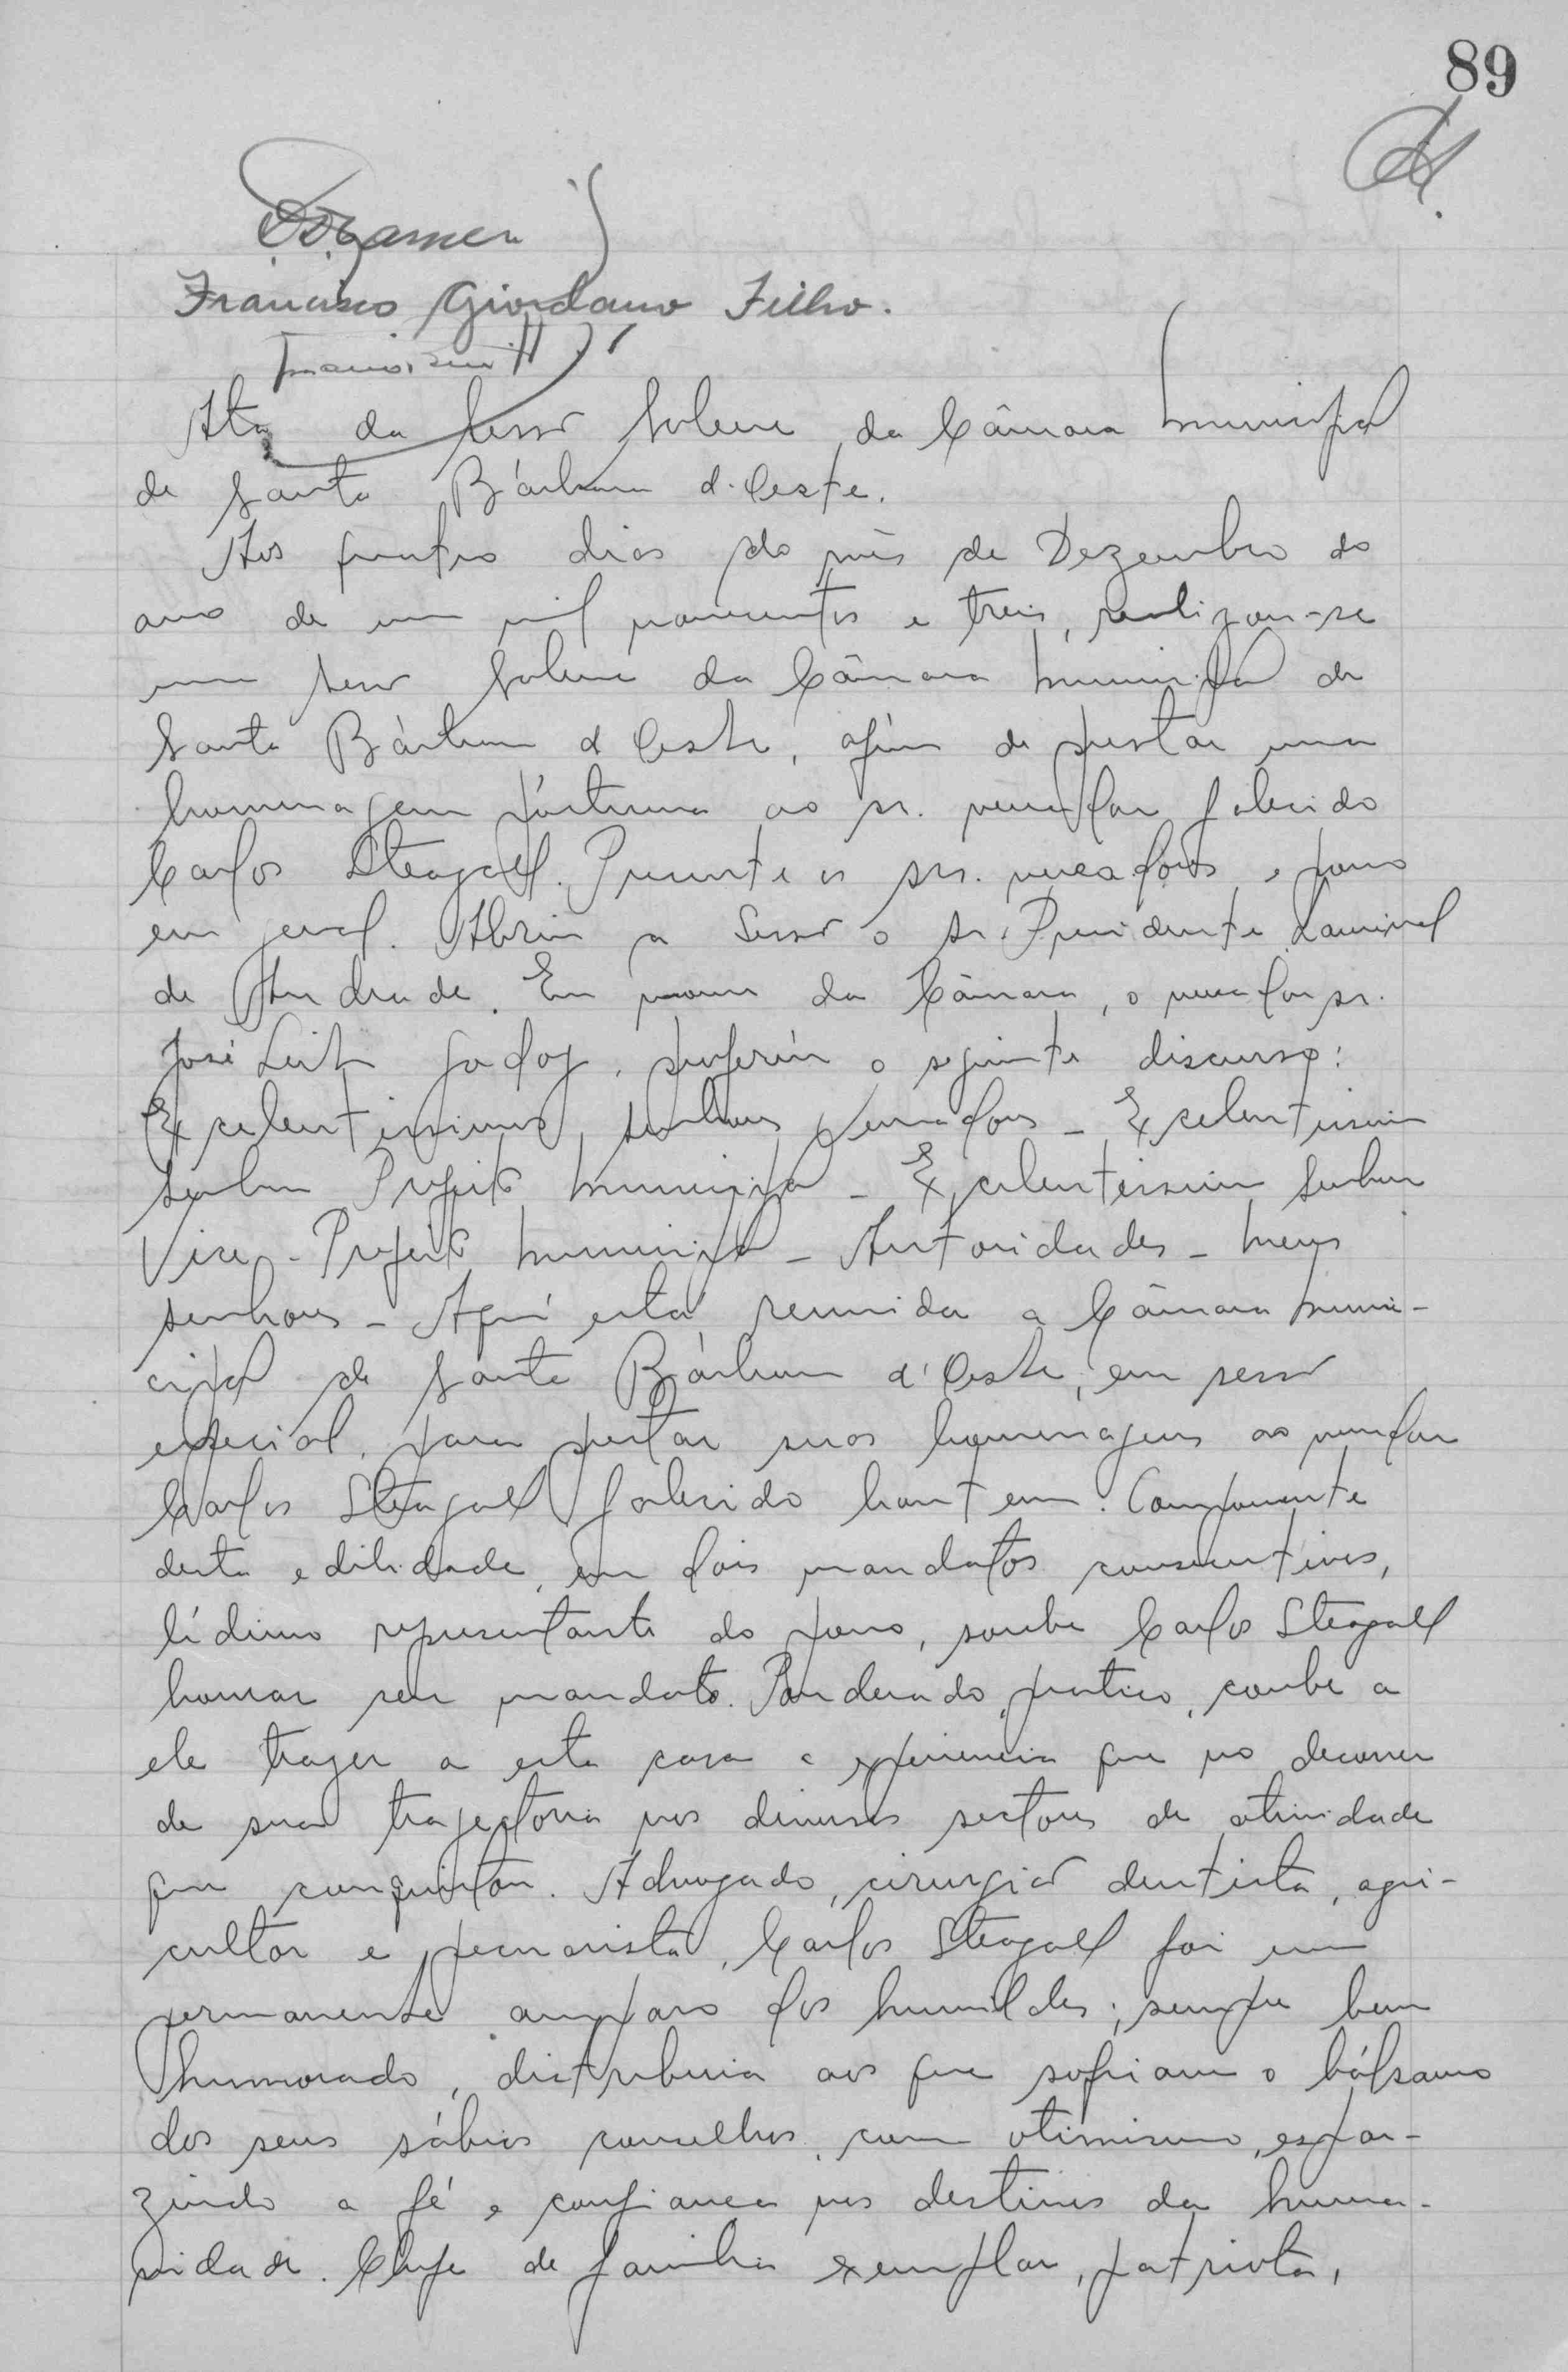 89
Francisco Giordano Filho.
Ata da Sessão Solene da Câmara Municipal
de Santa Bárbara d'Oeste.
Aos quatro dias do mês de Dezembro do
ano de um mil novecentos e treis, realizou-se
uma Sessão Solene da Câmara Municipal de
Santa Bárbara d'Oeste, afim de prestar uma
homenagem póstuma ao sr. vereador falecido
Carlos Steagall. Presente os srs. vereadores e povo
em geral. Abriu a Sessão o sr. Presidente
de Andrade. Em nome da Câmara, o vereador sr.
José Leite Godoy, proferiu o seguinte discurso:
Excelentissimos senhores Vereadores - Excelentissimo
Senhor Prefeito Municipal - Excelentissimo Senhor
Vice-Prefeito Municipal - Autoridades - Meus
senhores - Aqui está reunida a Câmara Muni-
cipal de Santa Bárbara d'Oeste, em sessão
especial, para prestar suas homenagens ao vereador
Carlos Steagall falecido hontem. Componente
desta edilidade, em dois mandatos consecutivos,
lídimo representante do povo, soube Carlos Steagall
honrar seu mandato. Ponderado, pratico, coube a
ele trazer a esta casa a experiencia que no decorrer
de sua trajectória nos diversos sectores de atividade
que conquistou. Advogado, cirurgião dentista, agri-
cultor e pecuarista, Carlos Steagall foi um
permanente amparo dos humildes; sempre bem
humorado, distribuia aos que sofriam o bálsamo
dos seus sábios conselhos, com otimismo, espar-
zindo a fé e confiança nos destinos da huma-
nidade. Chefe de familia exemplar, patriota,